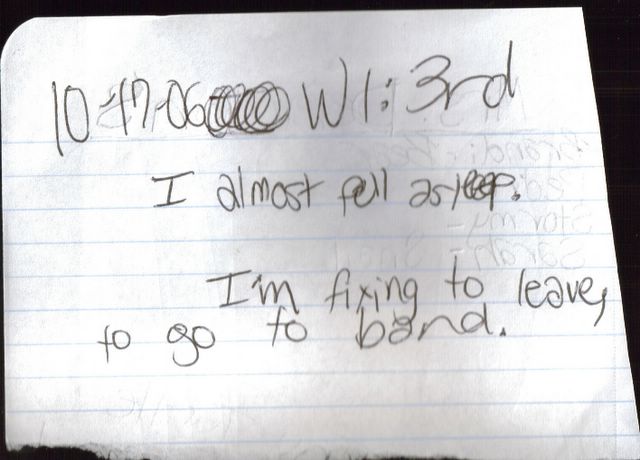 10-17-06 W1: 3rd
I almost fell asleep.
I'm fixing to leave,
to go to band.
Brandi-
Stormy-
Sarah-